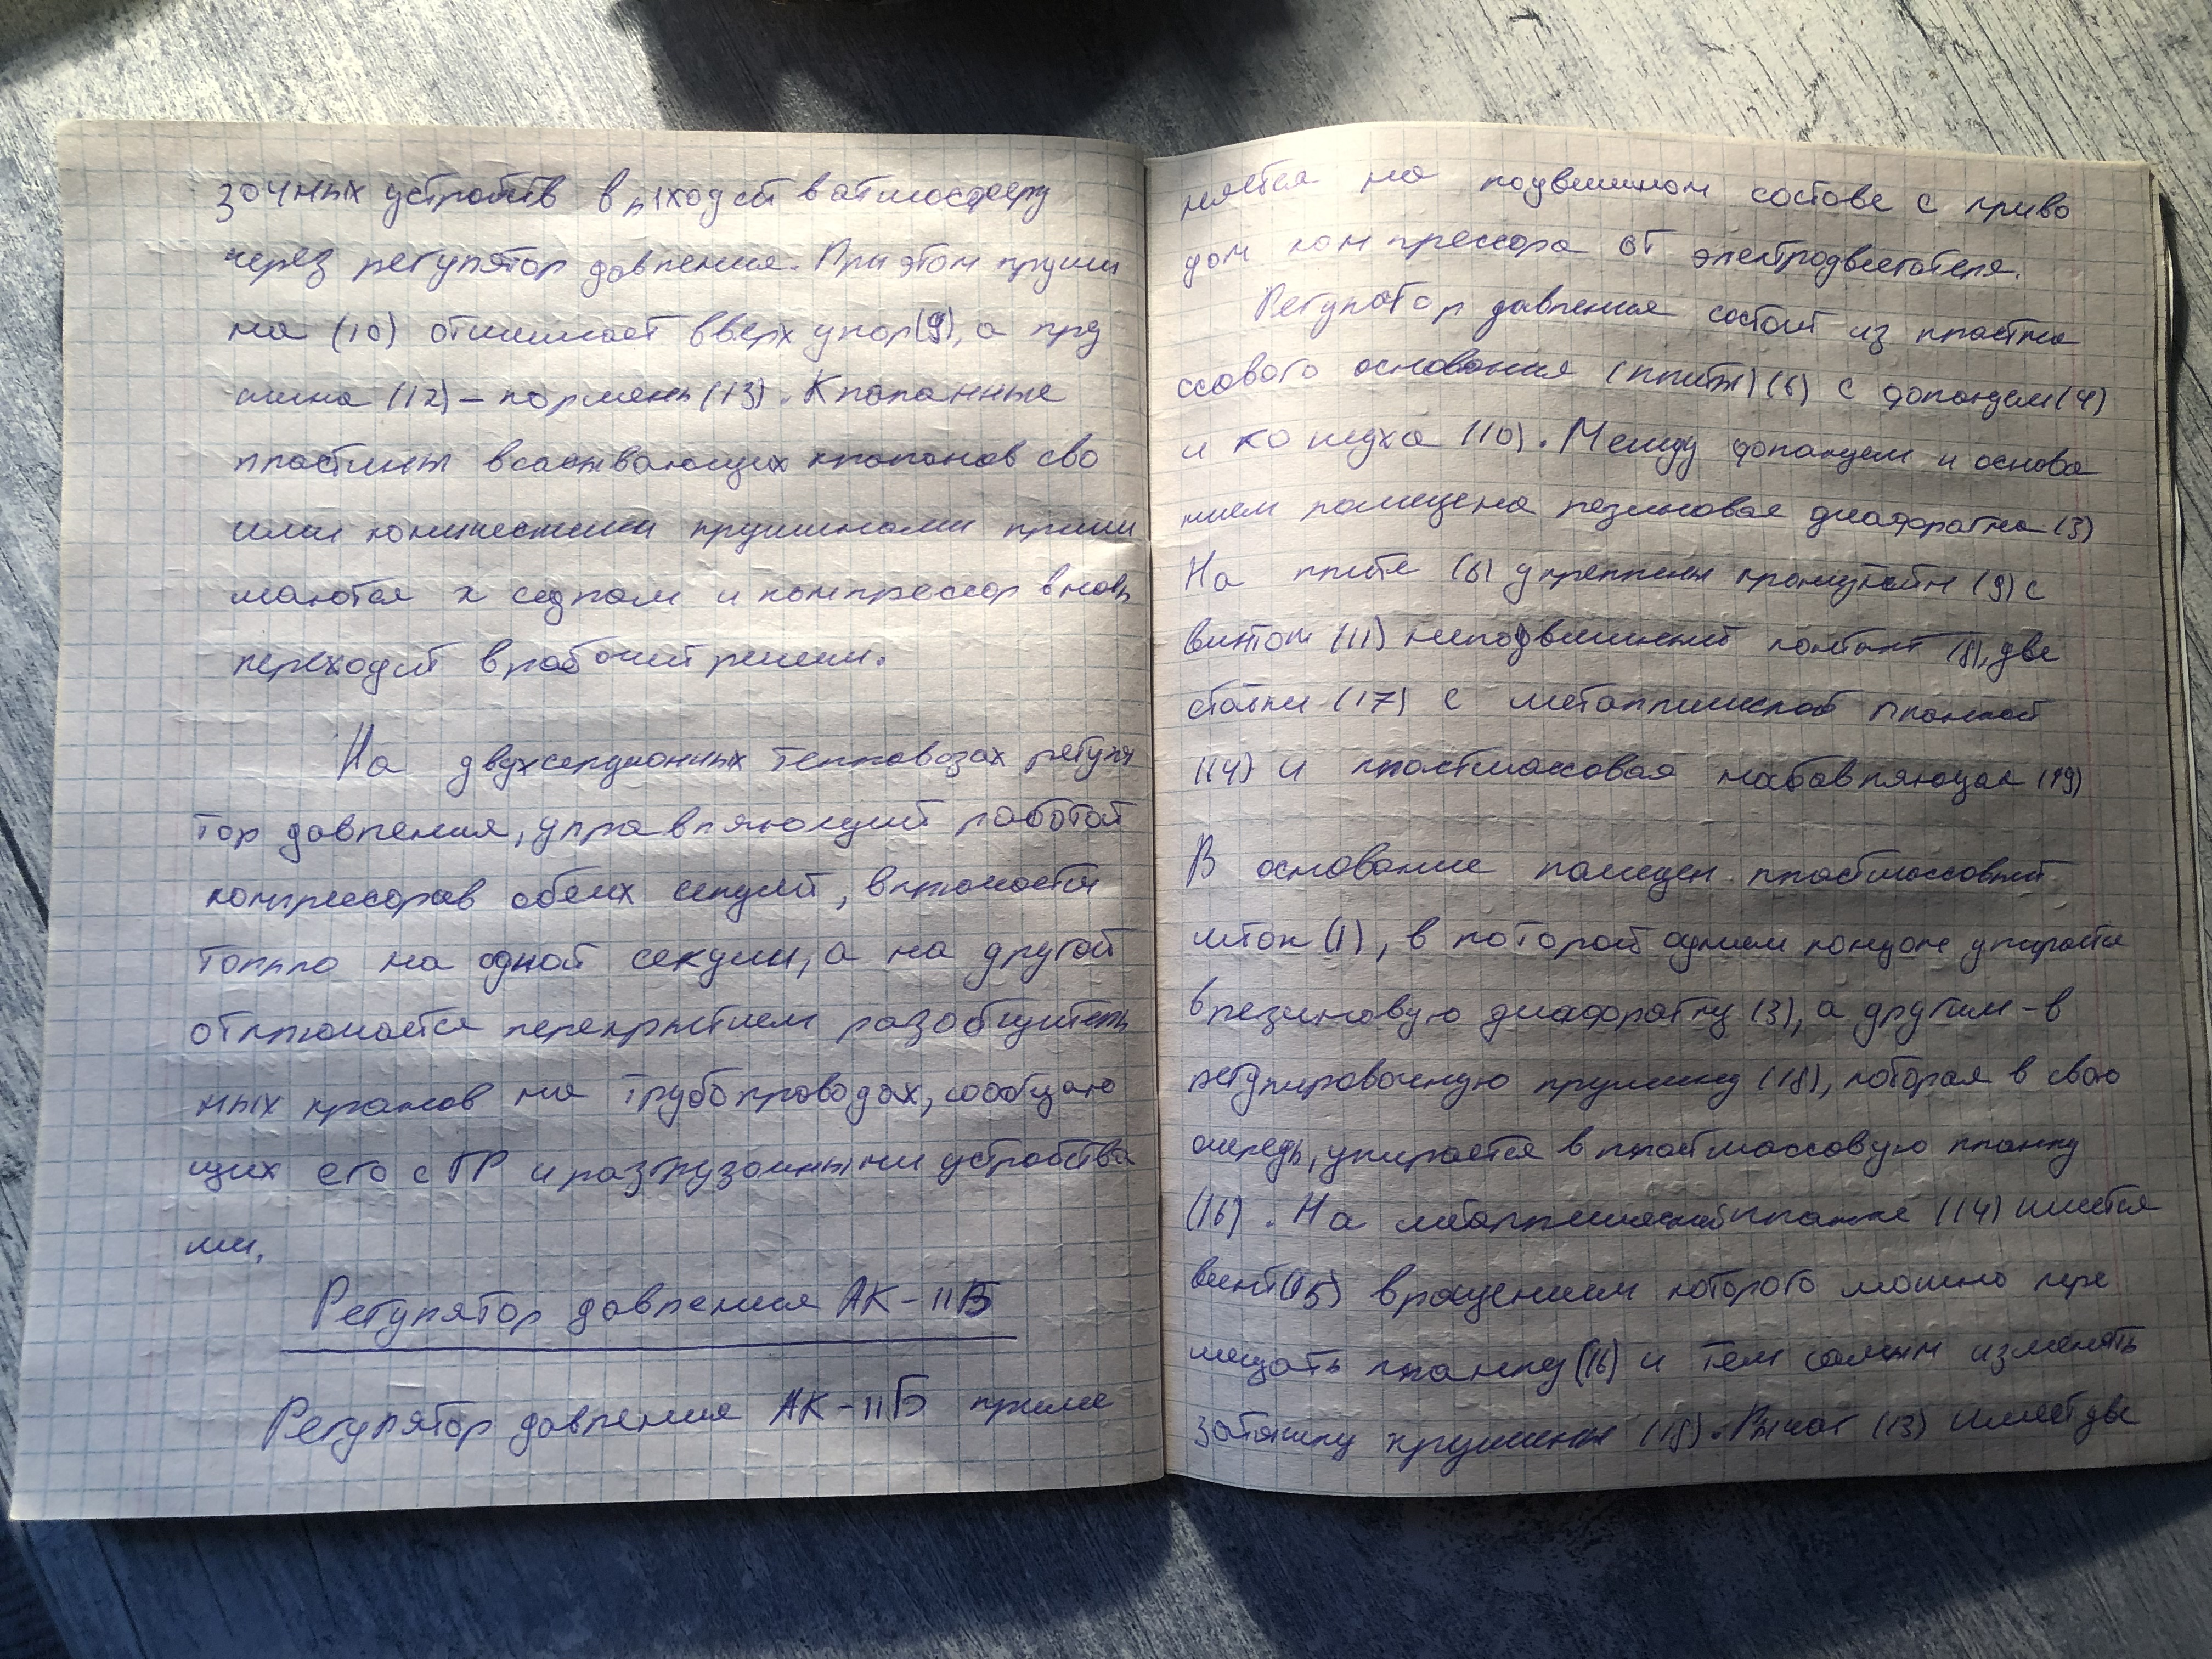 зочных устройств выходит в атмосферу
через регулятор давления. При этом пружи
на (10) отжимает вверх упор (9), а пру
жина (12) – поршень (13). Клапанные
пластины всасывающих клапанов сво
ими коническими пружинами прижи
маются к седлам и компрессор вновь
переходит в рабочий режим.
На двухсекционных тепловозах регуля
тор давления, управляющий работой
компрессоров обеих секций, включается
только на одной секции, а на другой
отключается перекрытием разобщитель
ных кранов на трубопроводах, сообщаю
щих его с ГР и разгрузочными устройства
ми.
Регулятор давления АК-11Б
Регулятор давления АК-11Б приме
няется на подвижном составе с приво
дом компрессора от электродвигателя.
Регулятор давления состоит из пластма
ссового основания (плиты) (6) с фланцем (4)
и кожуха (10). Между фланцем и основа
нием помещена резиновая диафрагма (3)
На плите (6) укреплены кронштейн (9) с
винтом (11) неподвижный контакт (8), две
стойки (17) с металлической планкой
(14) и пластмассовая направляющая (19)
В основание помещен пластмассовый
шток (1), в которой одним концом упирается
в резиновую диафрагму (3), а другим – в
регулировочную пружину (18), которая в свою
очередь, упирается в пластмассовую планку
(16). На металлической планке (14) имеется
винт (15) вращением которого можно пере
мещать планку (16) и тем самым изменять
затяжку пружины (18). Рычаг (13) имеет две